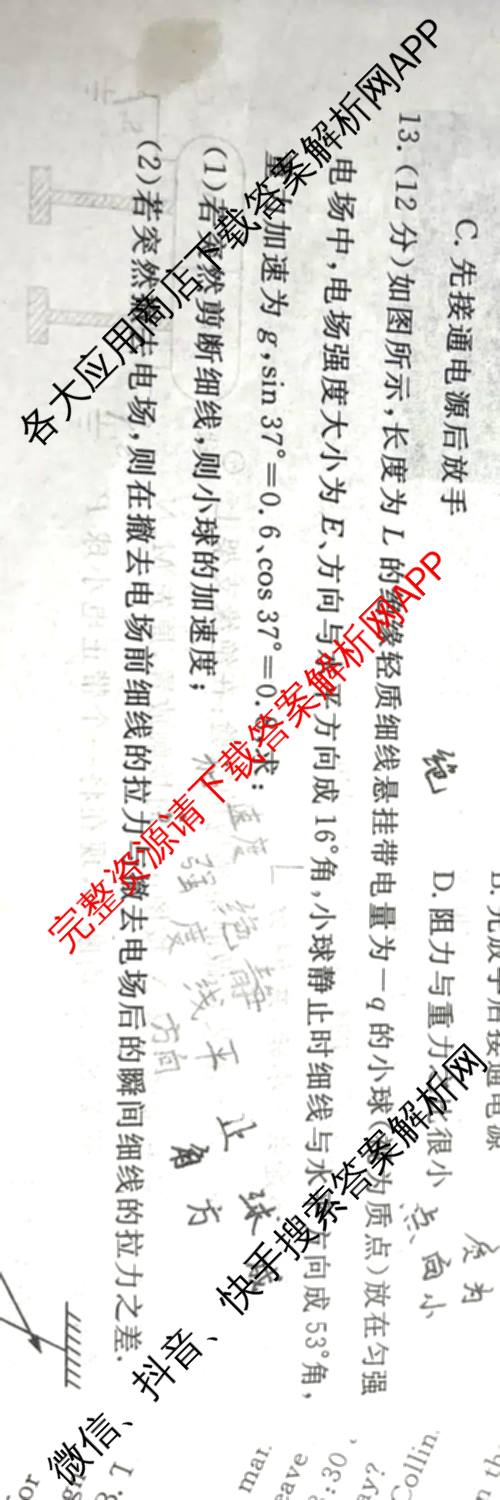 C. 先接通电源后放手
D. 阻力与重力 很小
13. (12 分)如图所示,长度为 L 的绝缘轻质细线悬挂带电量为－q 的小球( 为质点)放在匀强
电场中,电场强度大小为 E、方向与水平方向成 16°角,小球静止时细线与水 方向成 53°角,
加速为 g,sin 37°=0. 6、cos 37°=0. 求:
(1)若突然剪断细线,则小球的加速度;
(2)若突然撤去电场,则在撤去电场前细线的拉力与撤去电场后的瞬间细线的拉力之差.
绝
速度
强度
绝 静
线 平
方向
止
角 方
球
点 向 小
质 为
各大应用商店下载答案解析网APP
完整资源请下载答案解析网APP
微信、抖音、快手搜索答案解析网
mar.
eave
:30,
ay?
Collin.
or